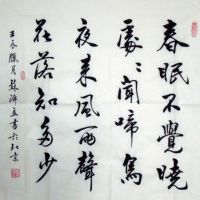 春眠不覺曉
處々聞啼鳥
夜来風雨聲
花落知多少
壬辰臘月蘇書於北京